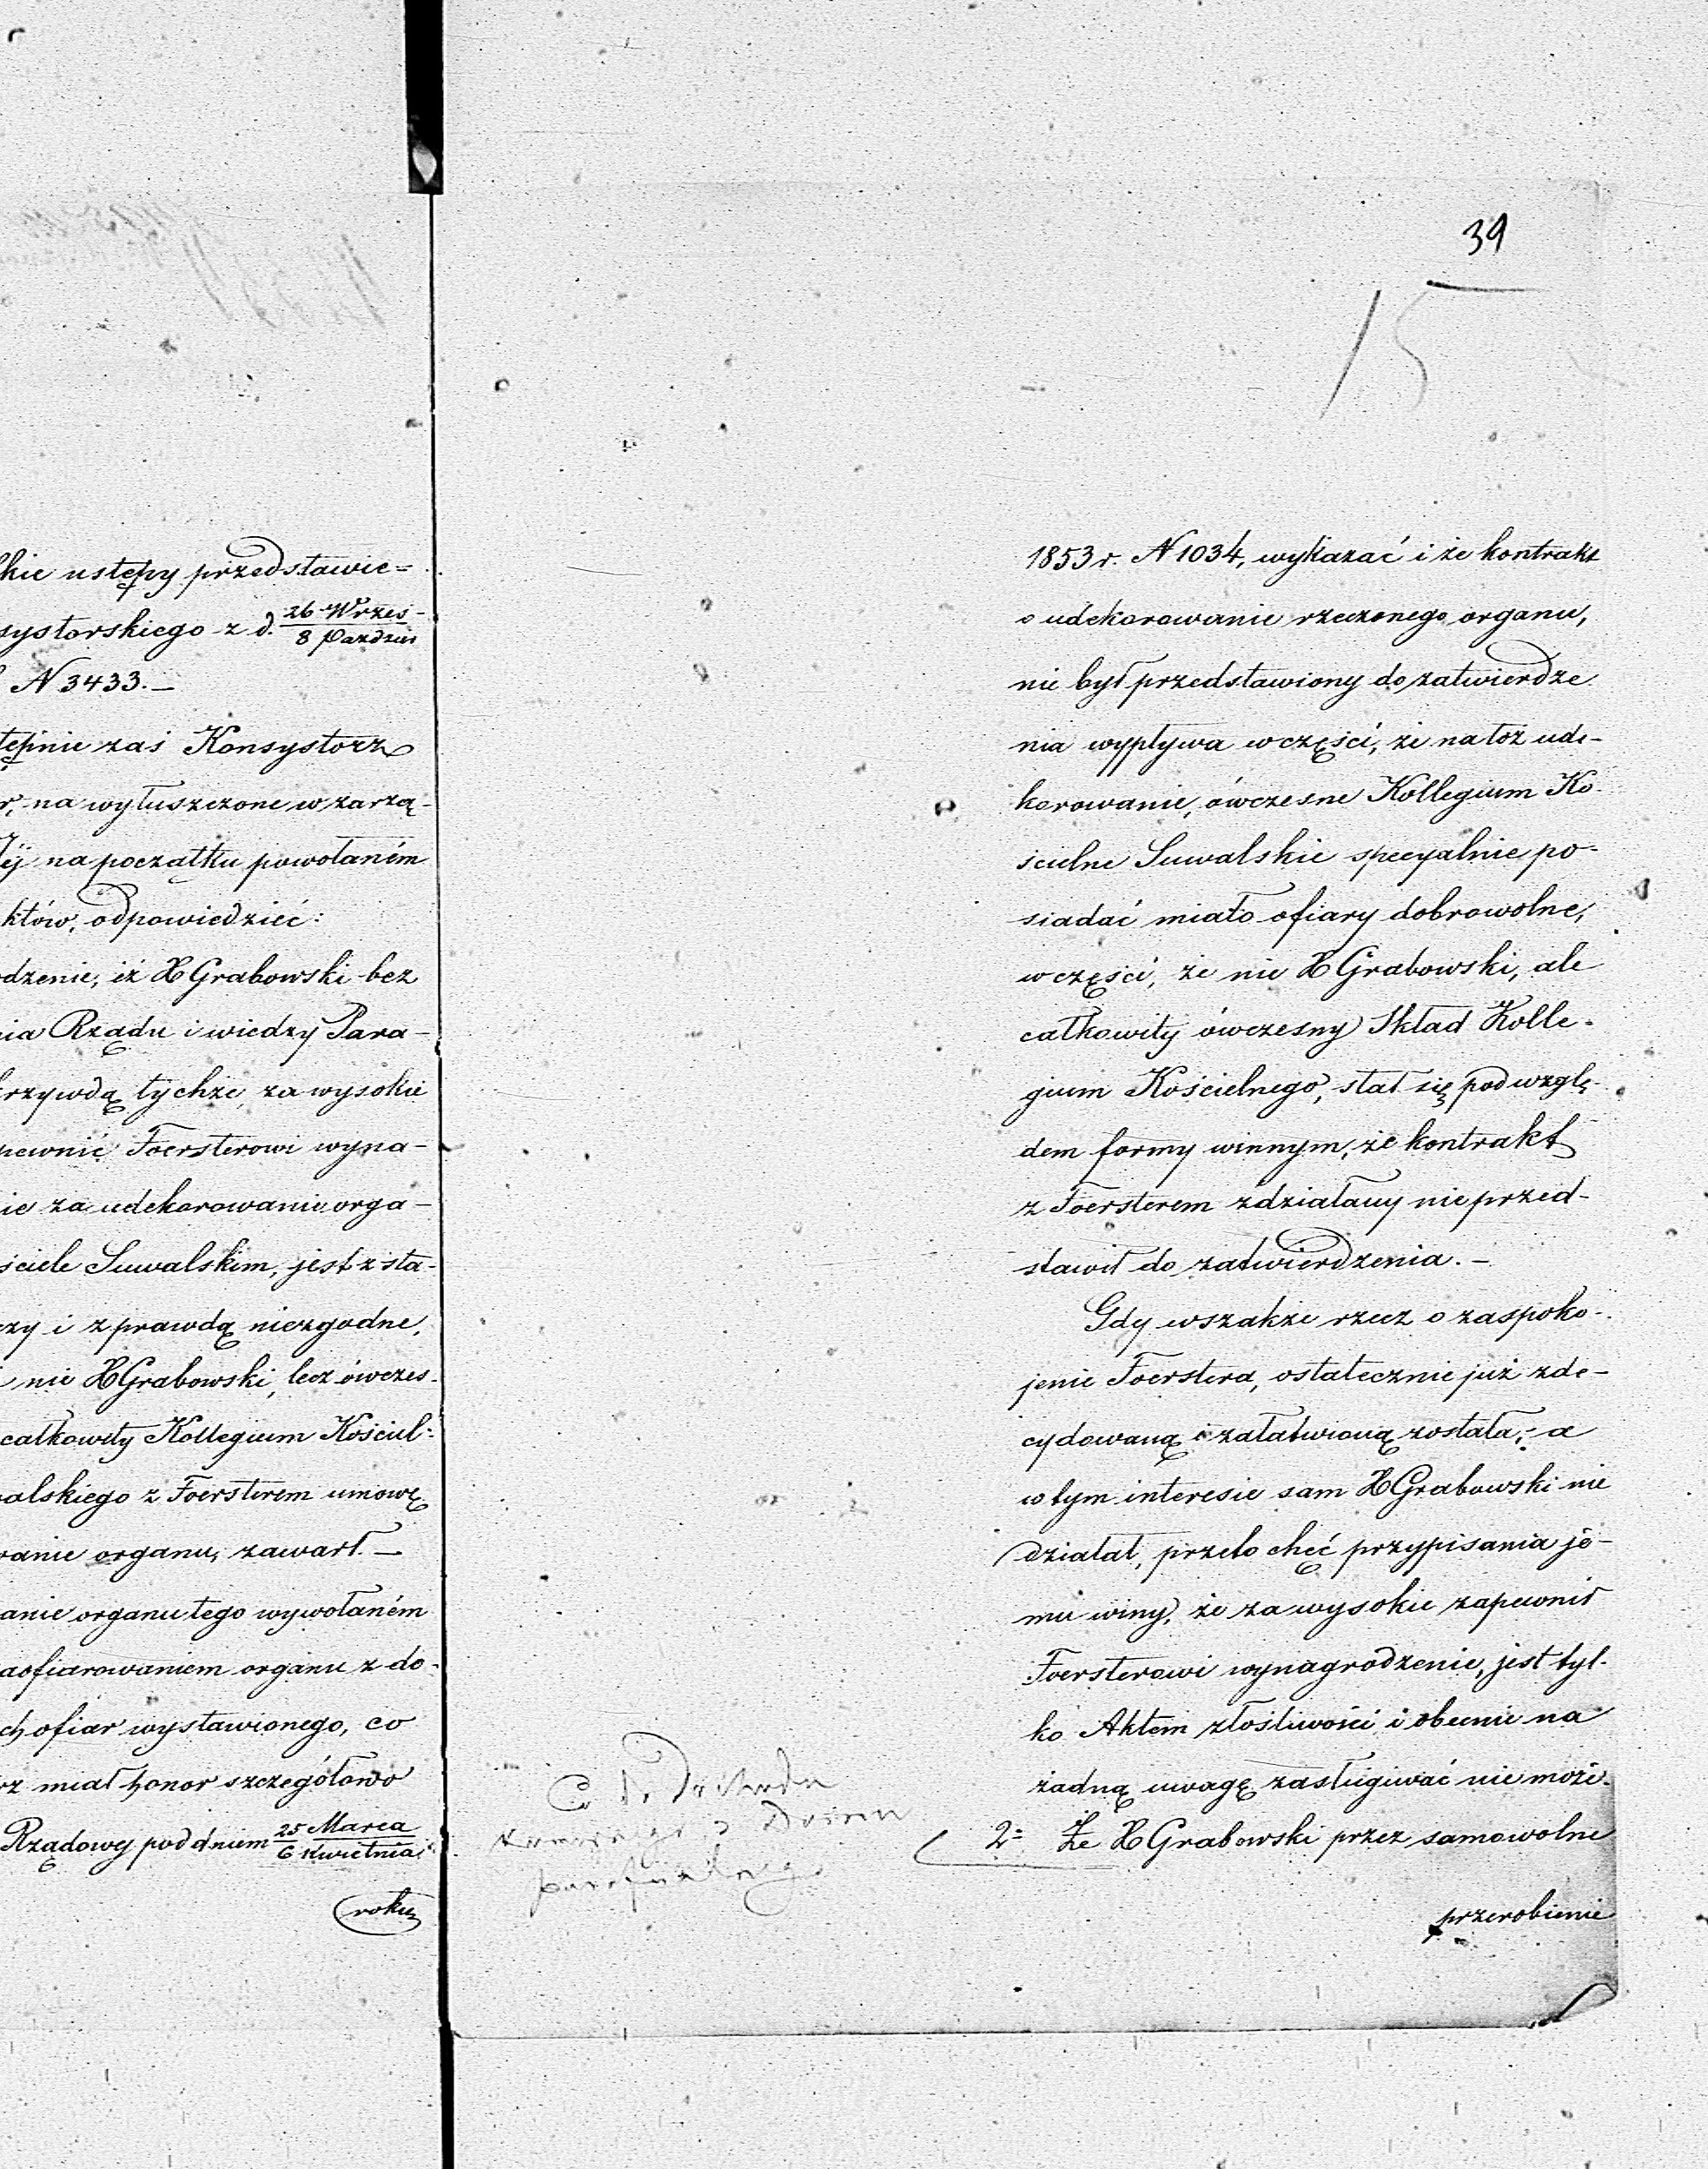 kie ustępy przedstawie=
systorskiego z d. 26 Wrześ- / 8 Paździer
N 3433.—
tępnie zaś Konsystorz
r, na wyłuszczone w zarzą-
éj na początku powołaném
któw, odpowiedzieć:
dzenie, iż X Grabowski bez
nia Rządu i wiedzy Para-
krzywdą tychże, za wysokie
pewnić Foersterowi wyna-
ie za udekorowanie orga-
ściele Suwalskim, jest z sta-
czy i z prawdą niezgodne,
nie X Grabowski, lecz ówczes-
całkowity Kollegium Kościel:
alskiego z Foersterem umowę
wanie organu, zawarł.—
anie organu tego wywołaném
aofiarowaniem organu z do-
ch ofiar wystawionego, co
rz miał honor szczegółowo
Rządowey pod dniem 25 Marca / 6 Kwietnia
roku
39
15
1853 r. N 1034, wykazać i że kontrakt
o udekorowanie rzeczonego organu,
nie był przedstawiony do zatwierdze
nia wypływa w części, że na toż ude-
korowanie, ówczesne Kollegium Ko-
ścielne Suwalskie specyalnie po-
siadać miało ofiary dobrowolne,
w części, że nie X Grabowski, ale
całkowity ówczesny Skład Kolle-
gium Kościelnego, stał się pod wzglę-
dem formy winnym, że kontrakt
z Foersterem zdziałany nie przed-
stawił do zatwierdzenia.—
Gdy wszakże rzecz o zaspoko-
jenie Foerstera, ostatecznie już zde-
cydowaną i załatwioną została, a
w tym interesie sam X Grabowski nie
działał, przeto chęć przypisania je-
mu winy, że za wysokie zapewnił
Foersterowi wynagrodzenie, jest tyl-
ko Aktem złośliwości i obecnie na
żadną uwagę zasługiwać nie może.
2= Że X Grabowski przez samowolne
przerobienie